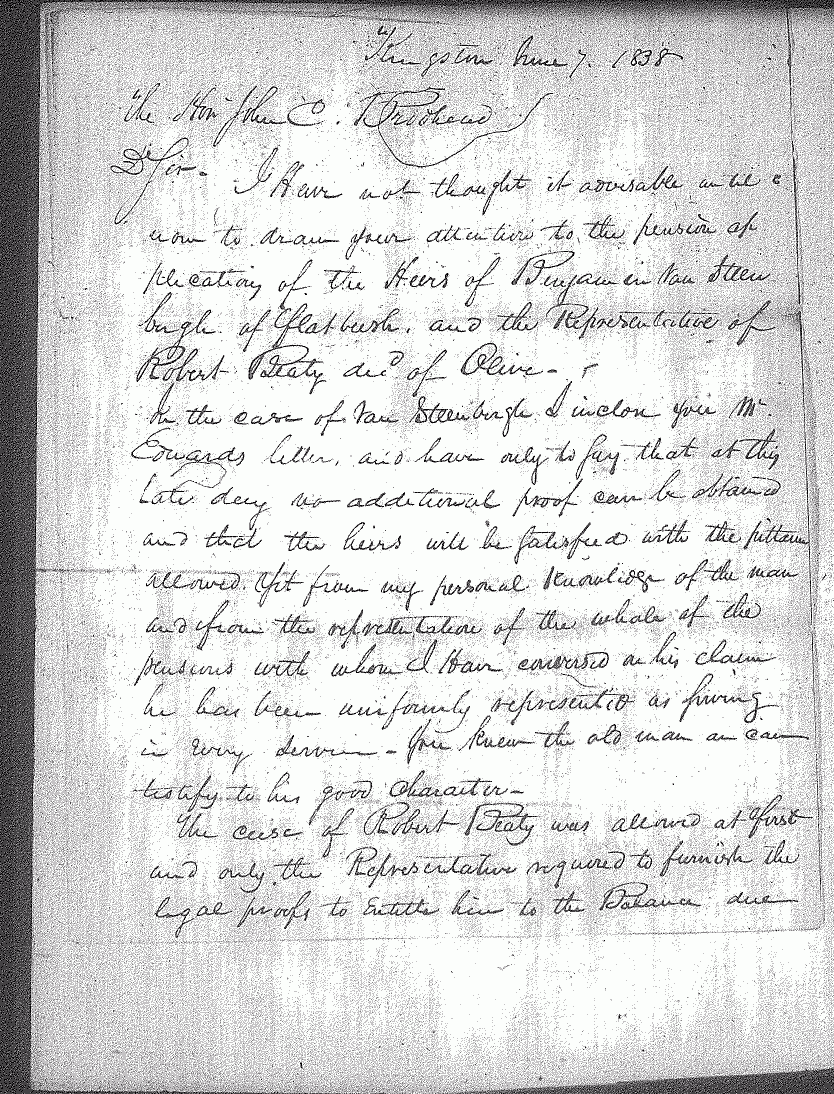 Kingston June 7. 1838
The Hon John C. Brodhead
D Sir. I Have not thought it advisable untill
now to draw your attention to the pension ap
plications of the Heirs of Benjamin Van Steen
bergh of Flatbush. and the Representative of
Robert Beaty decd of Olive -
In the case of Van Steenbergh I inclose you Mr.
Edwards letter, and have only to say that at this
Late day no additional proof can be obtained
and that the heirs will be satisfied with the pittance
allowed. Yet from my personal Knowledge of the man
and from the representation of the whole of the
pensions with whom I Have conversed on his claim
he has been uniformly represented as
in every service - You knew the old man an can
testify to his good Character -
The case of Robert Beaty was allowed at first
and only the Representative required to furnish the
legal proofs to Entitle him to the Balance due